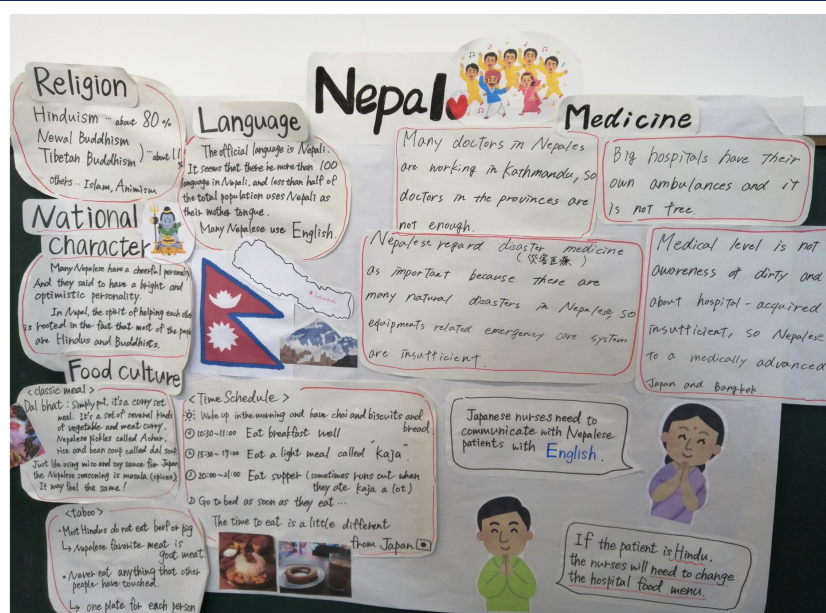 Nepal
Religion
Hinduism … about 80%
Newal Buddhism
Tibetan Buddhism ) … about 11
others … Islam, Animism
Language
The official language is Nepali.
It seems that there're more than 100
language in Nepali, and less than half of
the total population uses Nepali as
their mother tongue.
Many Nepalese use English.
National
Character
Many Nepalese have a cheerful personality
And they said to have a bright and
optimistic personality.
In Nepal, the spirit of helping each other
is rooted in the fact that most of the people
are Hindus and Buddhists.
Food culture
<classic meal>
Dal bhat : Simply put, it's a curry set
meal. It's a set of several kinds
of vegetable and meat curry,
Nepalese pickles called Achar,
rice and bean soup called dal soup.
Just like using miso and soy sauce for Japan
the Nepalese seasoning is masala (spices)
It may feel the same!
<taboo>
・Most Hindus do not eat beef or pig
↳ Nepalese favorite meat is
goat meat
・Never eat anything that other
people have touched.
↳ one plate for each person
<Time Schedule>
Wake up in the morning and have chai and biscuits and
bread
10:30~11:00 Eat breakfast well
15:30~17:00 Eat a light meal called "kaja".
20:00~21:00 Eat supper (sometimes runs out when
they ate kaja a lot)
Go to bed as soon as they eat …
The time to eat is a little different
from Japan
Medicine
Many doctors in Nepales
are working in Kathmandu, so
doctors in the provinces are
not enough.
Big hospitals have their
own ambulances and it
is not free.
Nepalese regard disaster medicine
(災害医療)
as important because there are
many natural disasters in Nepalese, so
equipments related emergency care system
are insufficient.
Medical level is not
awareness of dirty and
about hospital-acquired
insufficient, so Nepalese
to a medically advanced
Japan and Bangkok.
Japanese nurses need to
communicate with Nepalese
patients with English.
If the patient is Hindu,
the nurses will need to change
the hospital food menu.